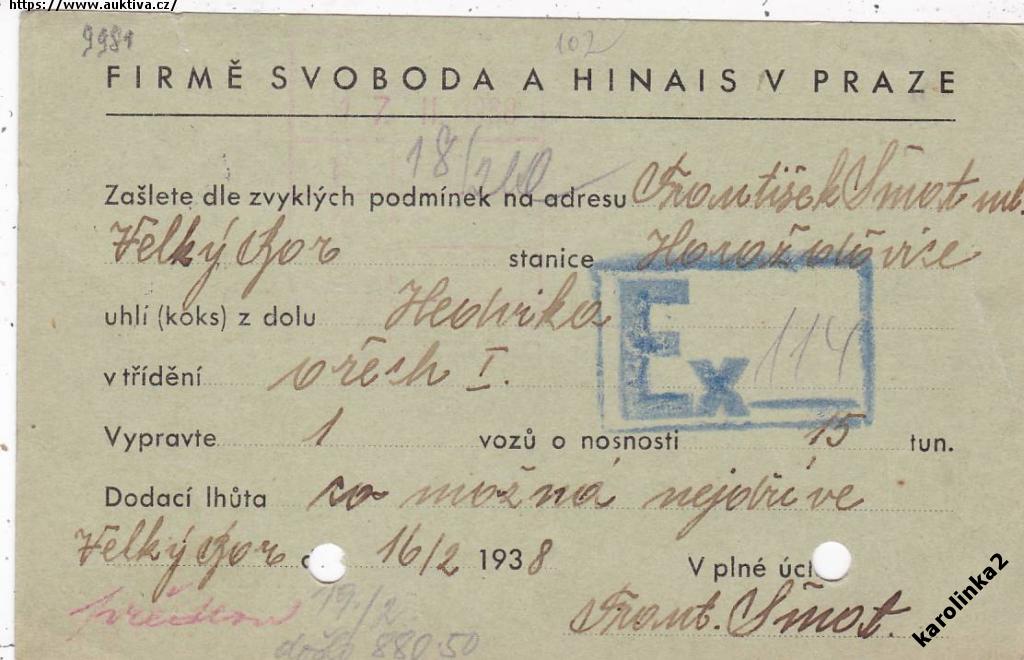 https://www.auktiva.cz/
9981
102
FIRMĚ SVOBODA A HINAIS V PRAZE
18/210
Zašlete dle zvyklých podmínek na adresu František Šmat ml.
Velký Bor stanice Horažďovice
uhlí (koks) z dolu Hedvika
v třídění ořech I.
Ex 114
Vypravte 1 vozů o nosnosti 15 tun.
Dodací lhůta co možná nejdříve
Velký Bor 16/2 1938 V plné úc
19./2 Frant. Šmat.
došlo 880.50
karolinka2